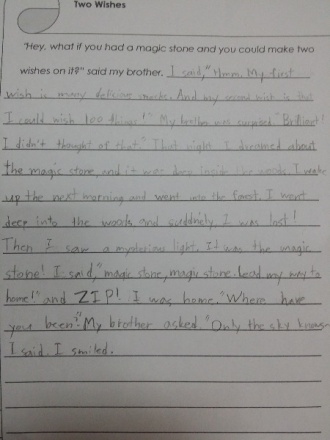 Two Wishes
"Hey, what if you had a magic stone and you could make two
wishes on it?" said my brother. I said, "Hmm. My first
wish is many delicious snacks. And my second wish is that
I could wish 100 things!" My brother was surprised. "Brilliant!
I didn't thought of that." That night I dreamed about
the magic stone, and it was deep inside the woods. I woke
up the next morning and went into the forest. I went
deep into the woods, and suddnely, I was lost!
Then I saw a mysterious light. It was the magic
stone! I said, "magic stone, magic stone. Lead my way to
home!" and ZIP! I was home. "Where have
you been?" My brother asked. "Only the sky knows"
I said. I smiled.